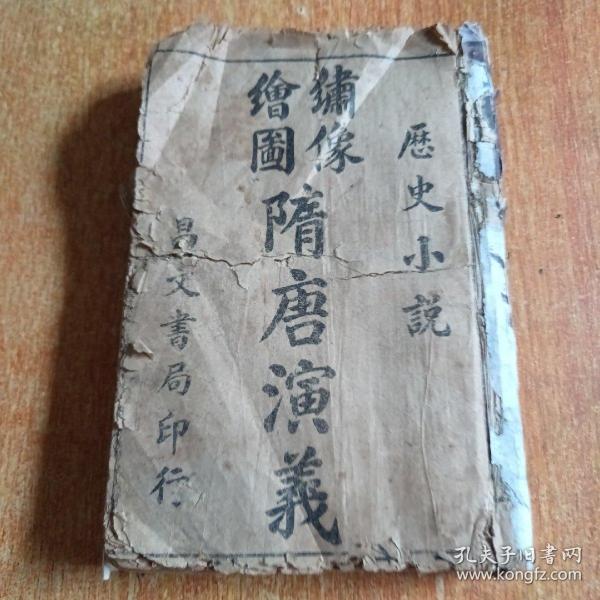 歷史小説
繡像
繪圖
隋唐演義
昌文書局印行
孔夫子旧书网
www.kongfz.com